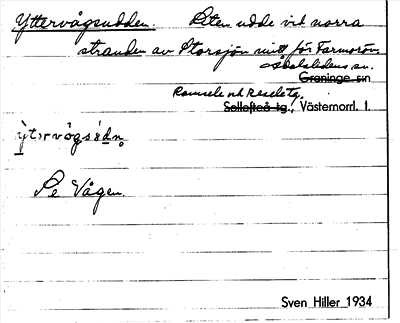 Yttervågsudden. Liten udde vid norra
stranden av Storsjön mitt för Farmorön
Ådalslidens sn.
Graninge sn
Ramsele och Resele tg.
Sollefteå tg., Västernorrl. l.
Se Vågen.
Sven Hiller 1934